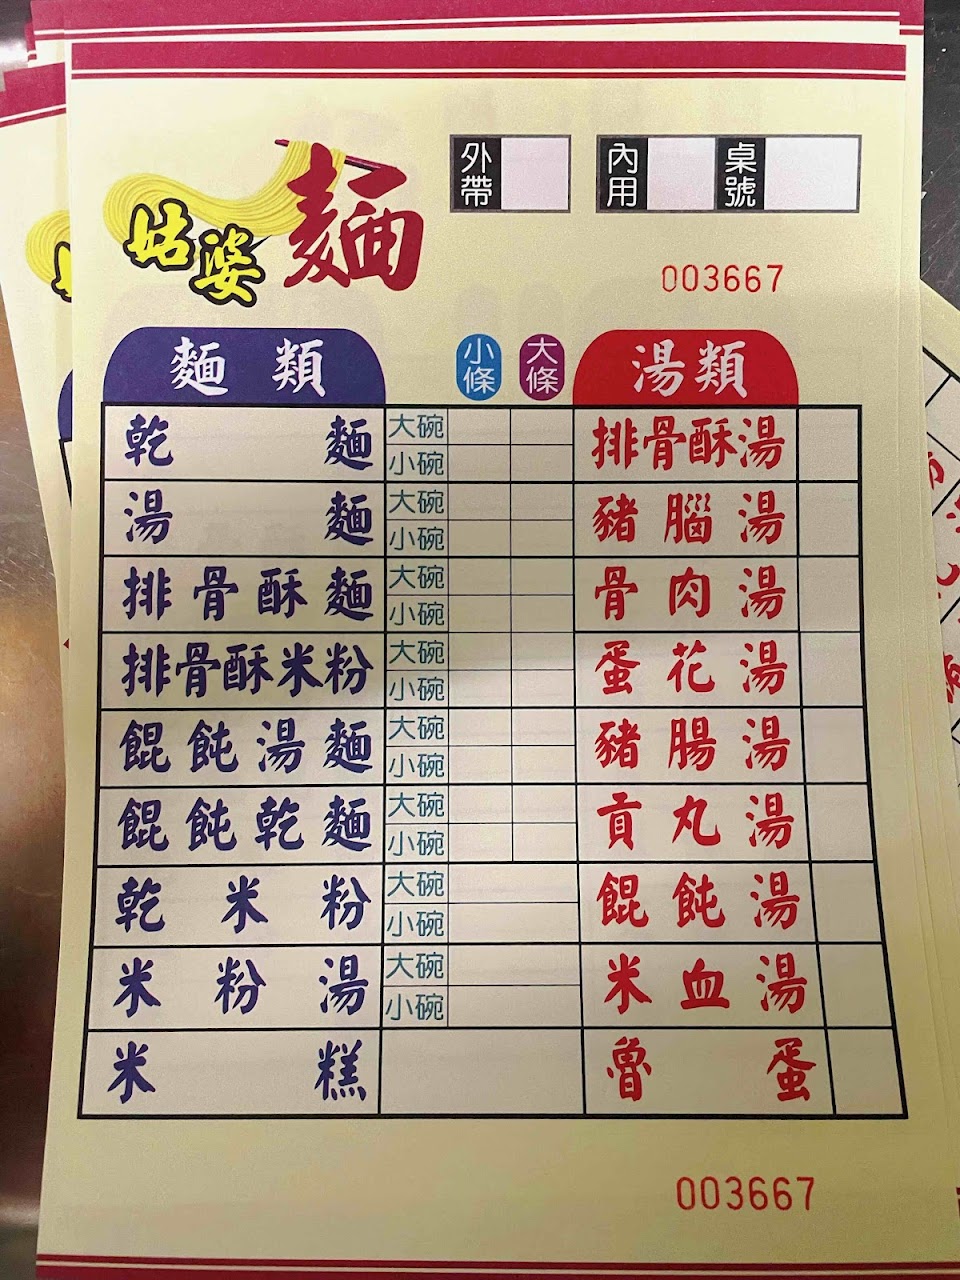 姑婆麵
外帶 內用 桌號
003667
麵類 小條 大條 湯類
乾麵 大碗 小碗 排骨酥湯
湯麵 大碗 小碗 豬腦湯
排骨酥麵 大碗 小碗 骨肉湯
排骨酥米粉 大碗 小碗 蛋花湯
餛飩湯麵 大碗 小碗 豬腸湯
餛飩乾麵 大碗 小碗 貢丸湯
乾米粉 大碗 小碗 餛飩湯
米粉湯 大碗 小碗 米血湯
米糕 魯蛋
003667